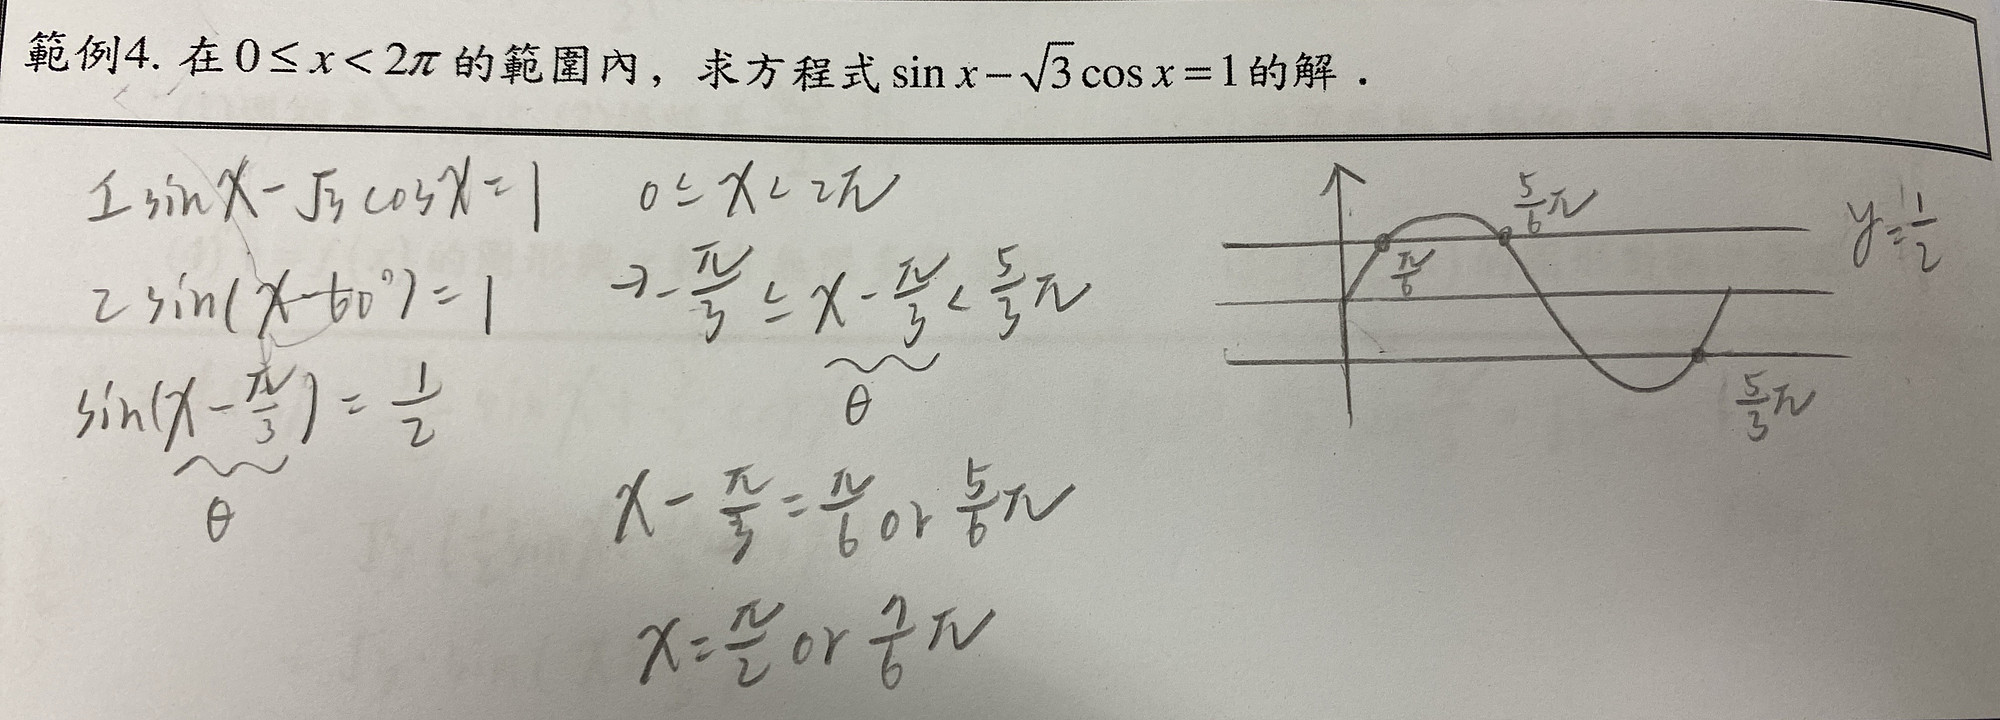 範例4. 在 0 ≤ x < 2π 的範圍內，求方程式 sin x − √3 cos x = 1 的解．
1 sin x − √3 cos x = 1
2 sin(x − 60°) = 1
sin(x − π/3) = 1/2
θ
0 ≤ x < 2π
→ − π/3 ≤ x − π/3 < 5/3 π
θ
x − π/3 = π/6 or 5/6 π
x = π/2 or 7/6 π
5/6 π
π/6
y = 1/2
5/3 π